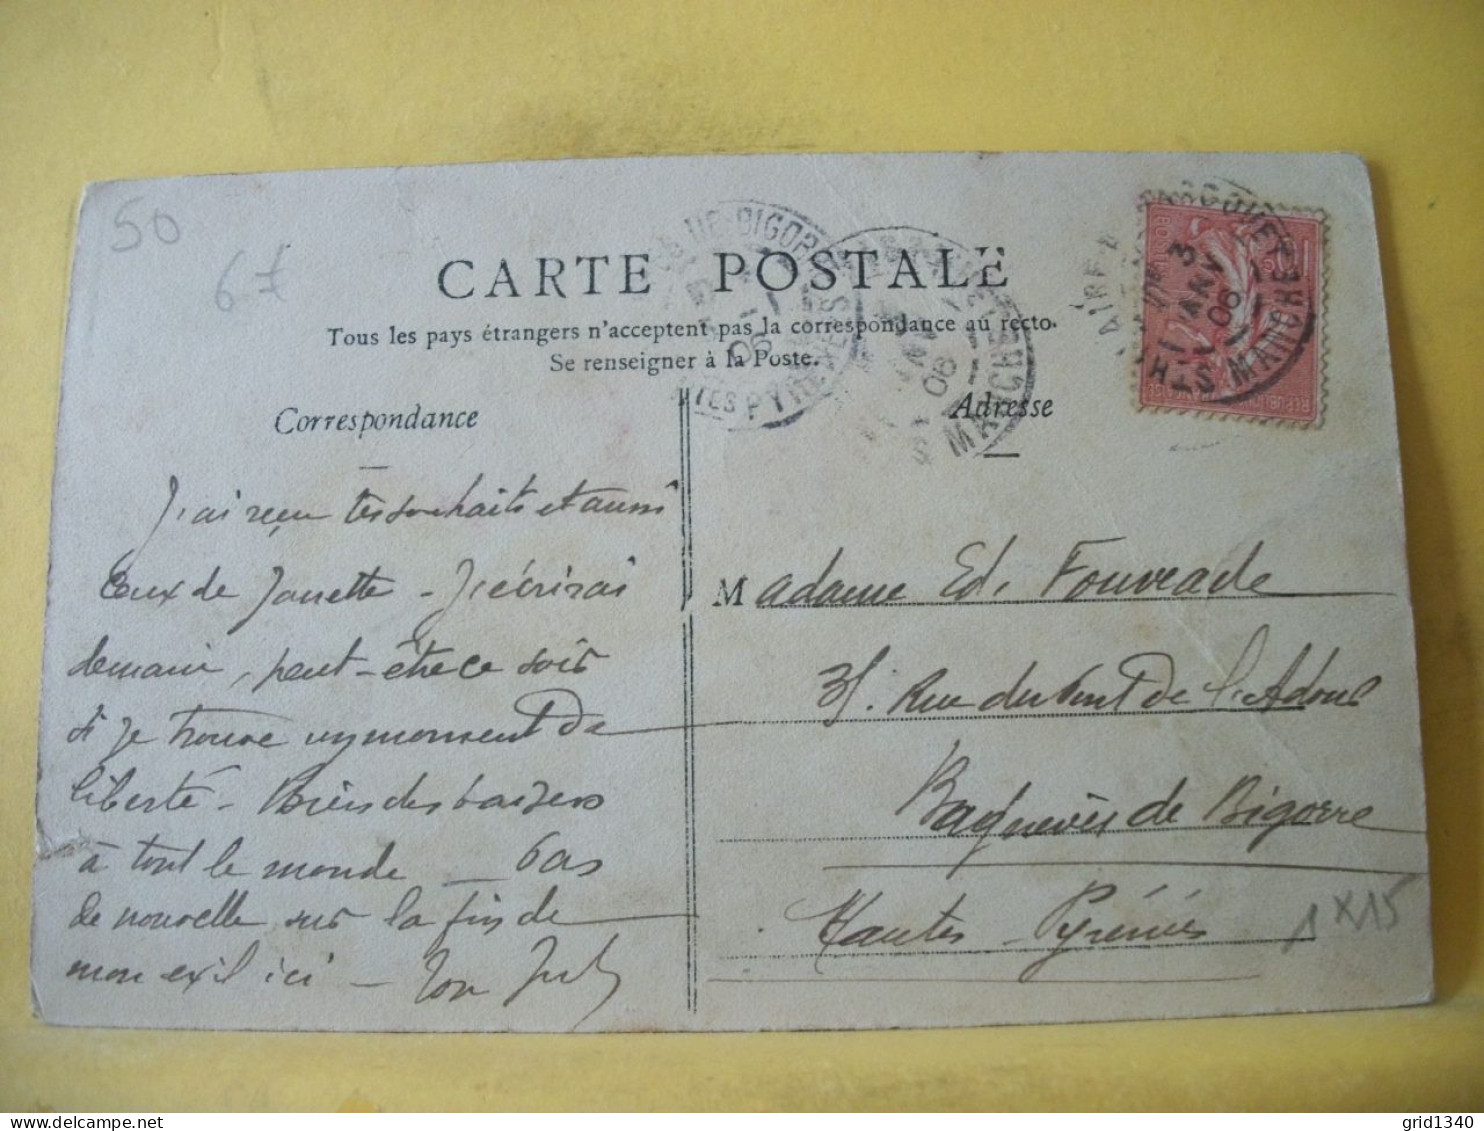 50
67
CARTE POSTALE
Tous les pays étrangers n'acceptent pas la correspondance au recto.
Se renseigner à la Poste.
Correspondance
Adresse
J'ai reçu tes souhaits et aussi
ceux de Janette - J'écrirai
demain, peut-être ce soir
si je trouve un moment de
liberté - Bien des baisers
à tout le monde - Pas
de nouvelle sur la fin de
mon exil ici - Ton
Madame Ed. Fouveade
Rue du Pont de l'Adour
Bagnères de Bigorre
Hautes-Pyrénées
1x15
DE-BIGOR
TES PYRÉNÉES
06
06
MANCHE
3
JANV
06
MANCHE
grid1340